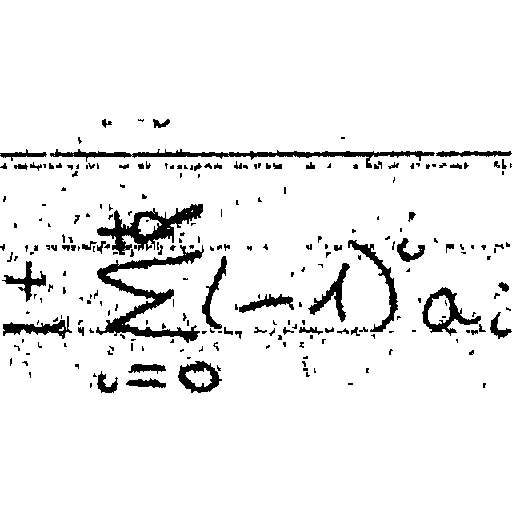 ± ∑_{i=0}^{+∞} (-1)^i a_i